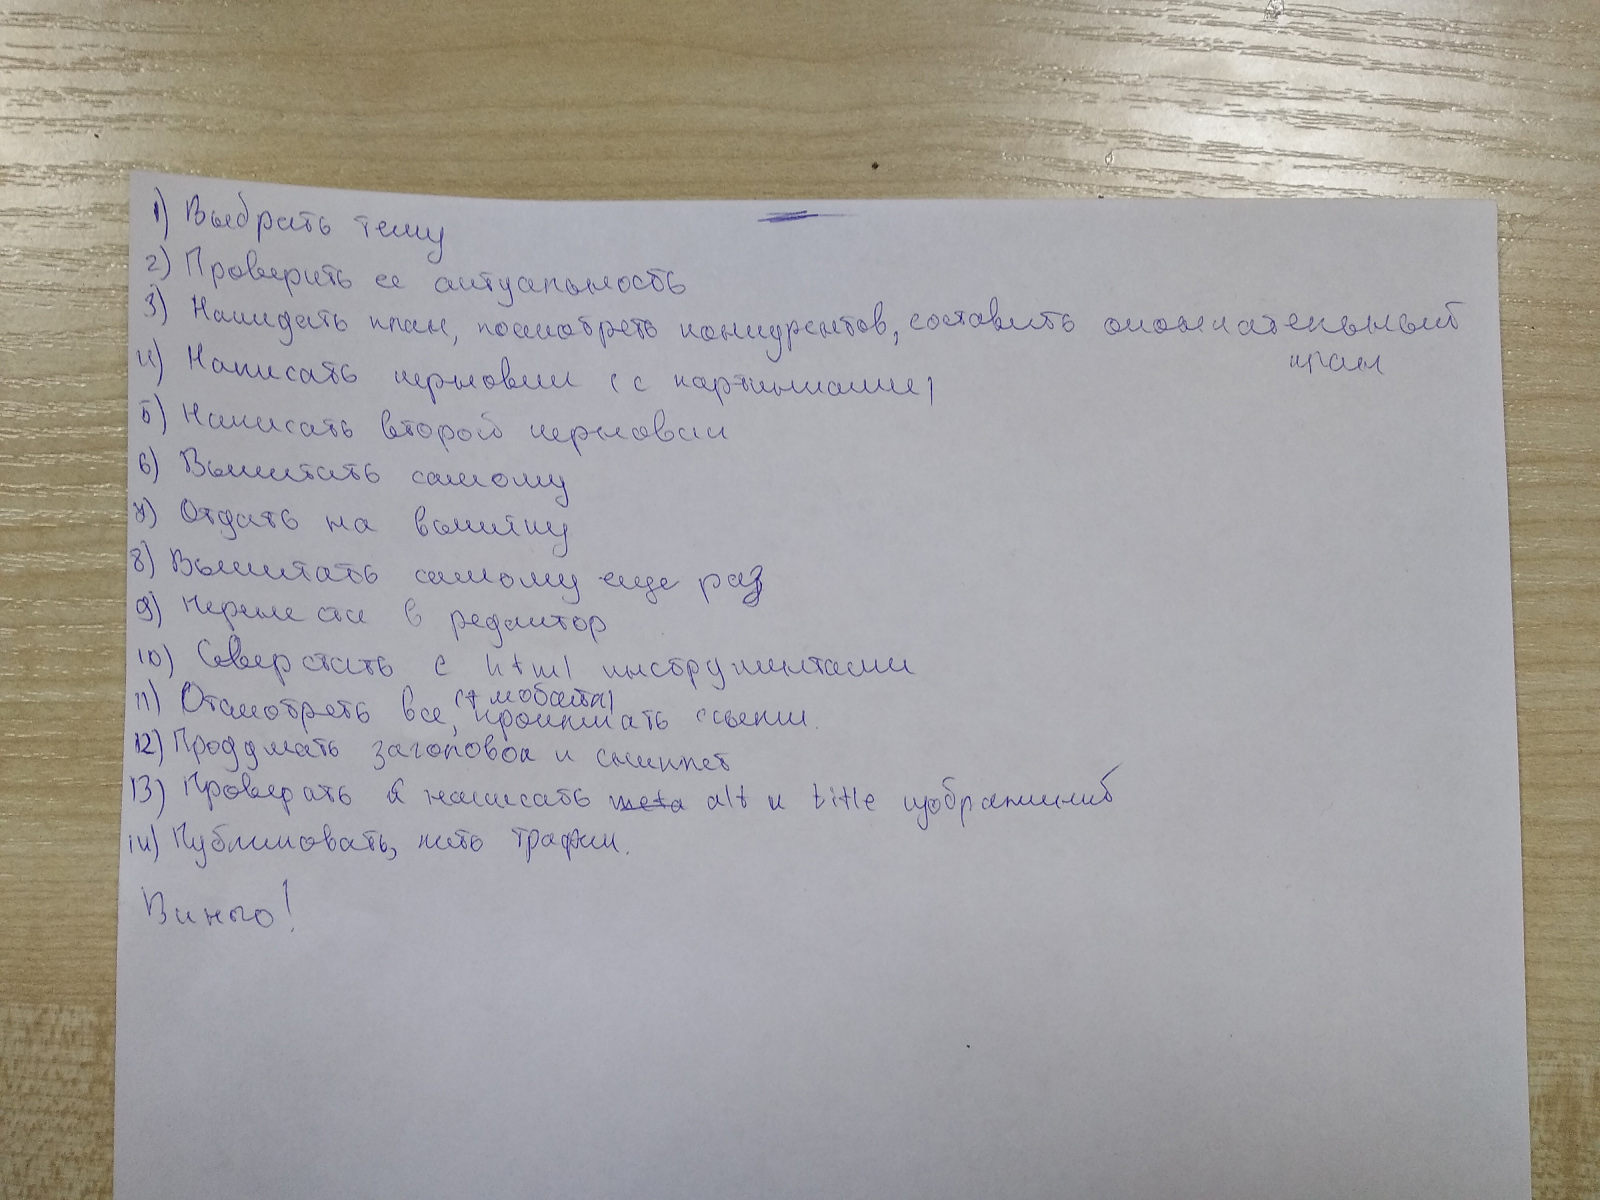 1) Выбрать тему
2) Проверить ее актуальность
3) Накидать план, посмотреть конкурентов, составить окончательный
план
4) Написать черновик (с картинками)
5) Написать второй черновик
6) Вычитать самому
7) Отдать на вычитку
8) Вычитать самому еще раз
9) Перенести в редактор
10) Сверстать с html инструментами
(+ мобайл)
11) Отсмотреть все, прокликать ссылки.
12) Продумать заголовок и сниппет
13) Проверять и написать meta alt и title изображений
14) Публиковать, лить трафик.
Винго!